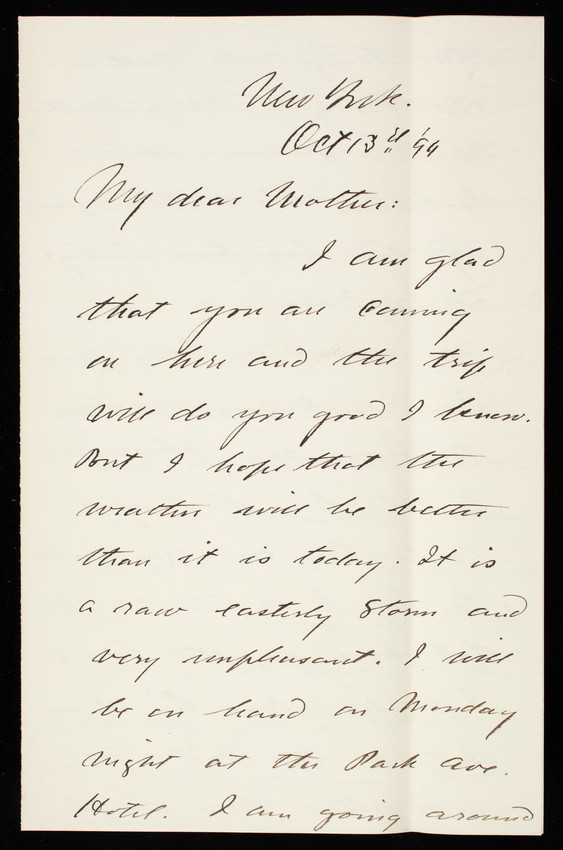 New York.
Oct 13rd '94
My dear Mother:
I am glad
that you are coming
on here and the trip
will do you good I know.
But I hope that the
weather will be better
than it is today. It is
a raw easterly storm and
very unpleasant. I will
be on hand on Monday
night at the Park Ave.
Hotel. I am going around